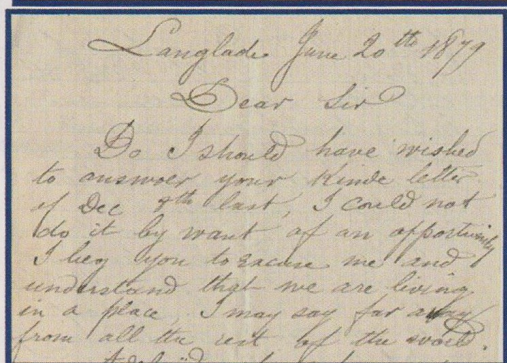 Langlade June 20th 1879
Dear Sir
Do I should have wished
to answer your kinde letter
of Dec 9th last, I could not
do it by want of an opportunity
I beg you to excuse me and
understand that we are living
in a place, I may say far away
from all the rest of the world.